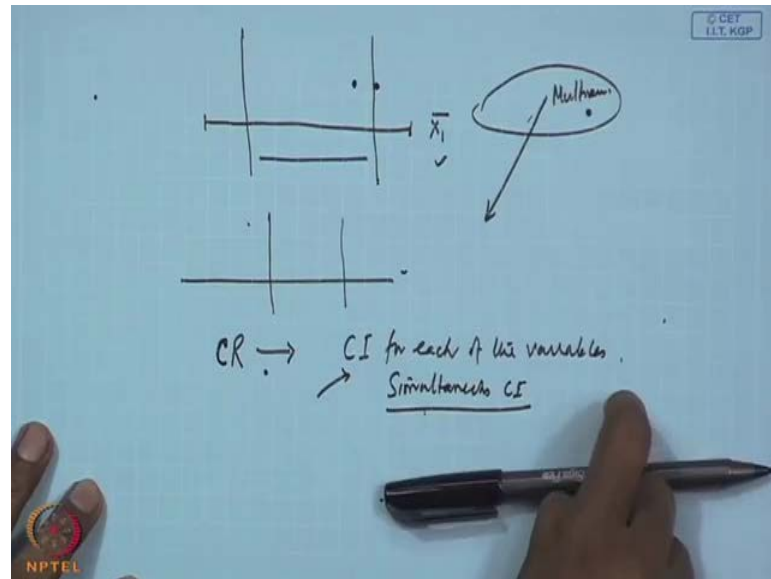 © CET
I.I.T. KGP
X̄₁
CR → CI for each of the variables.
Simultaneous CI
NPTEL